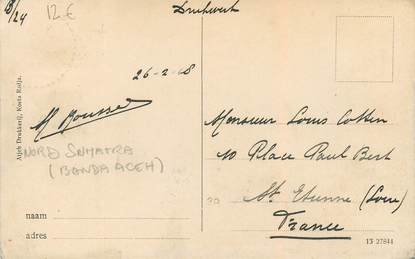 B/24 12 €
Drukwerk
26-2-08
M Rousse
NORD SUMATRA
(BANDA ACEH)
Atjeh Drukkerij, Koeta Radja.
naam
adres
Monsieur Louis Cotten
10 Place Paul Bert
St Etienne (Loire)
France
13 27844